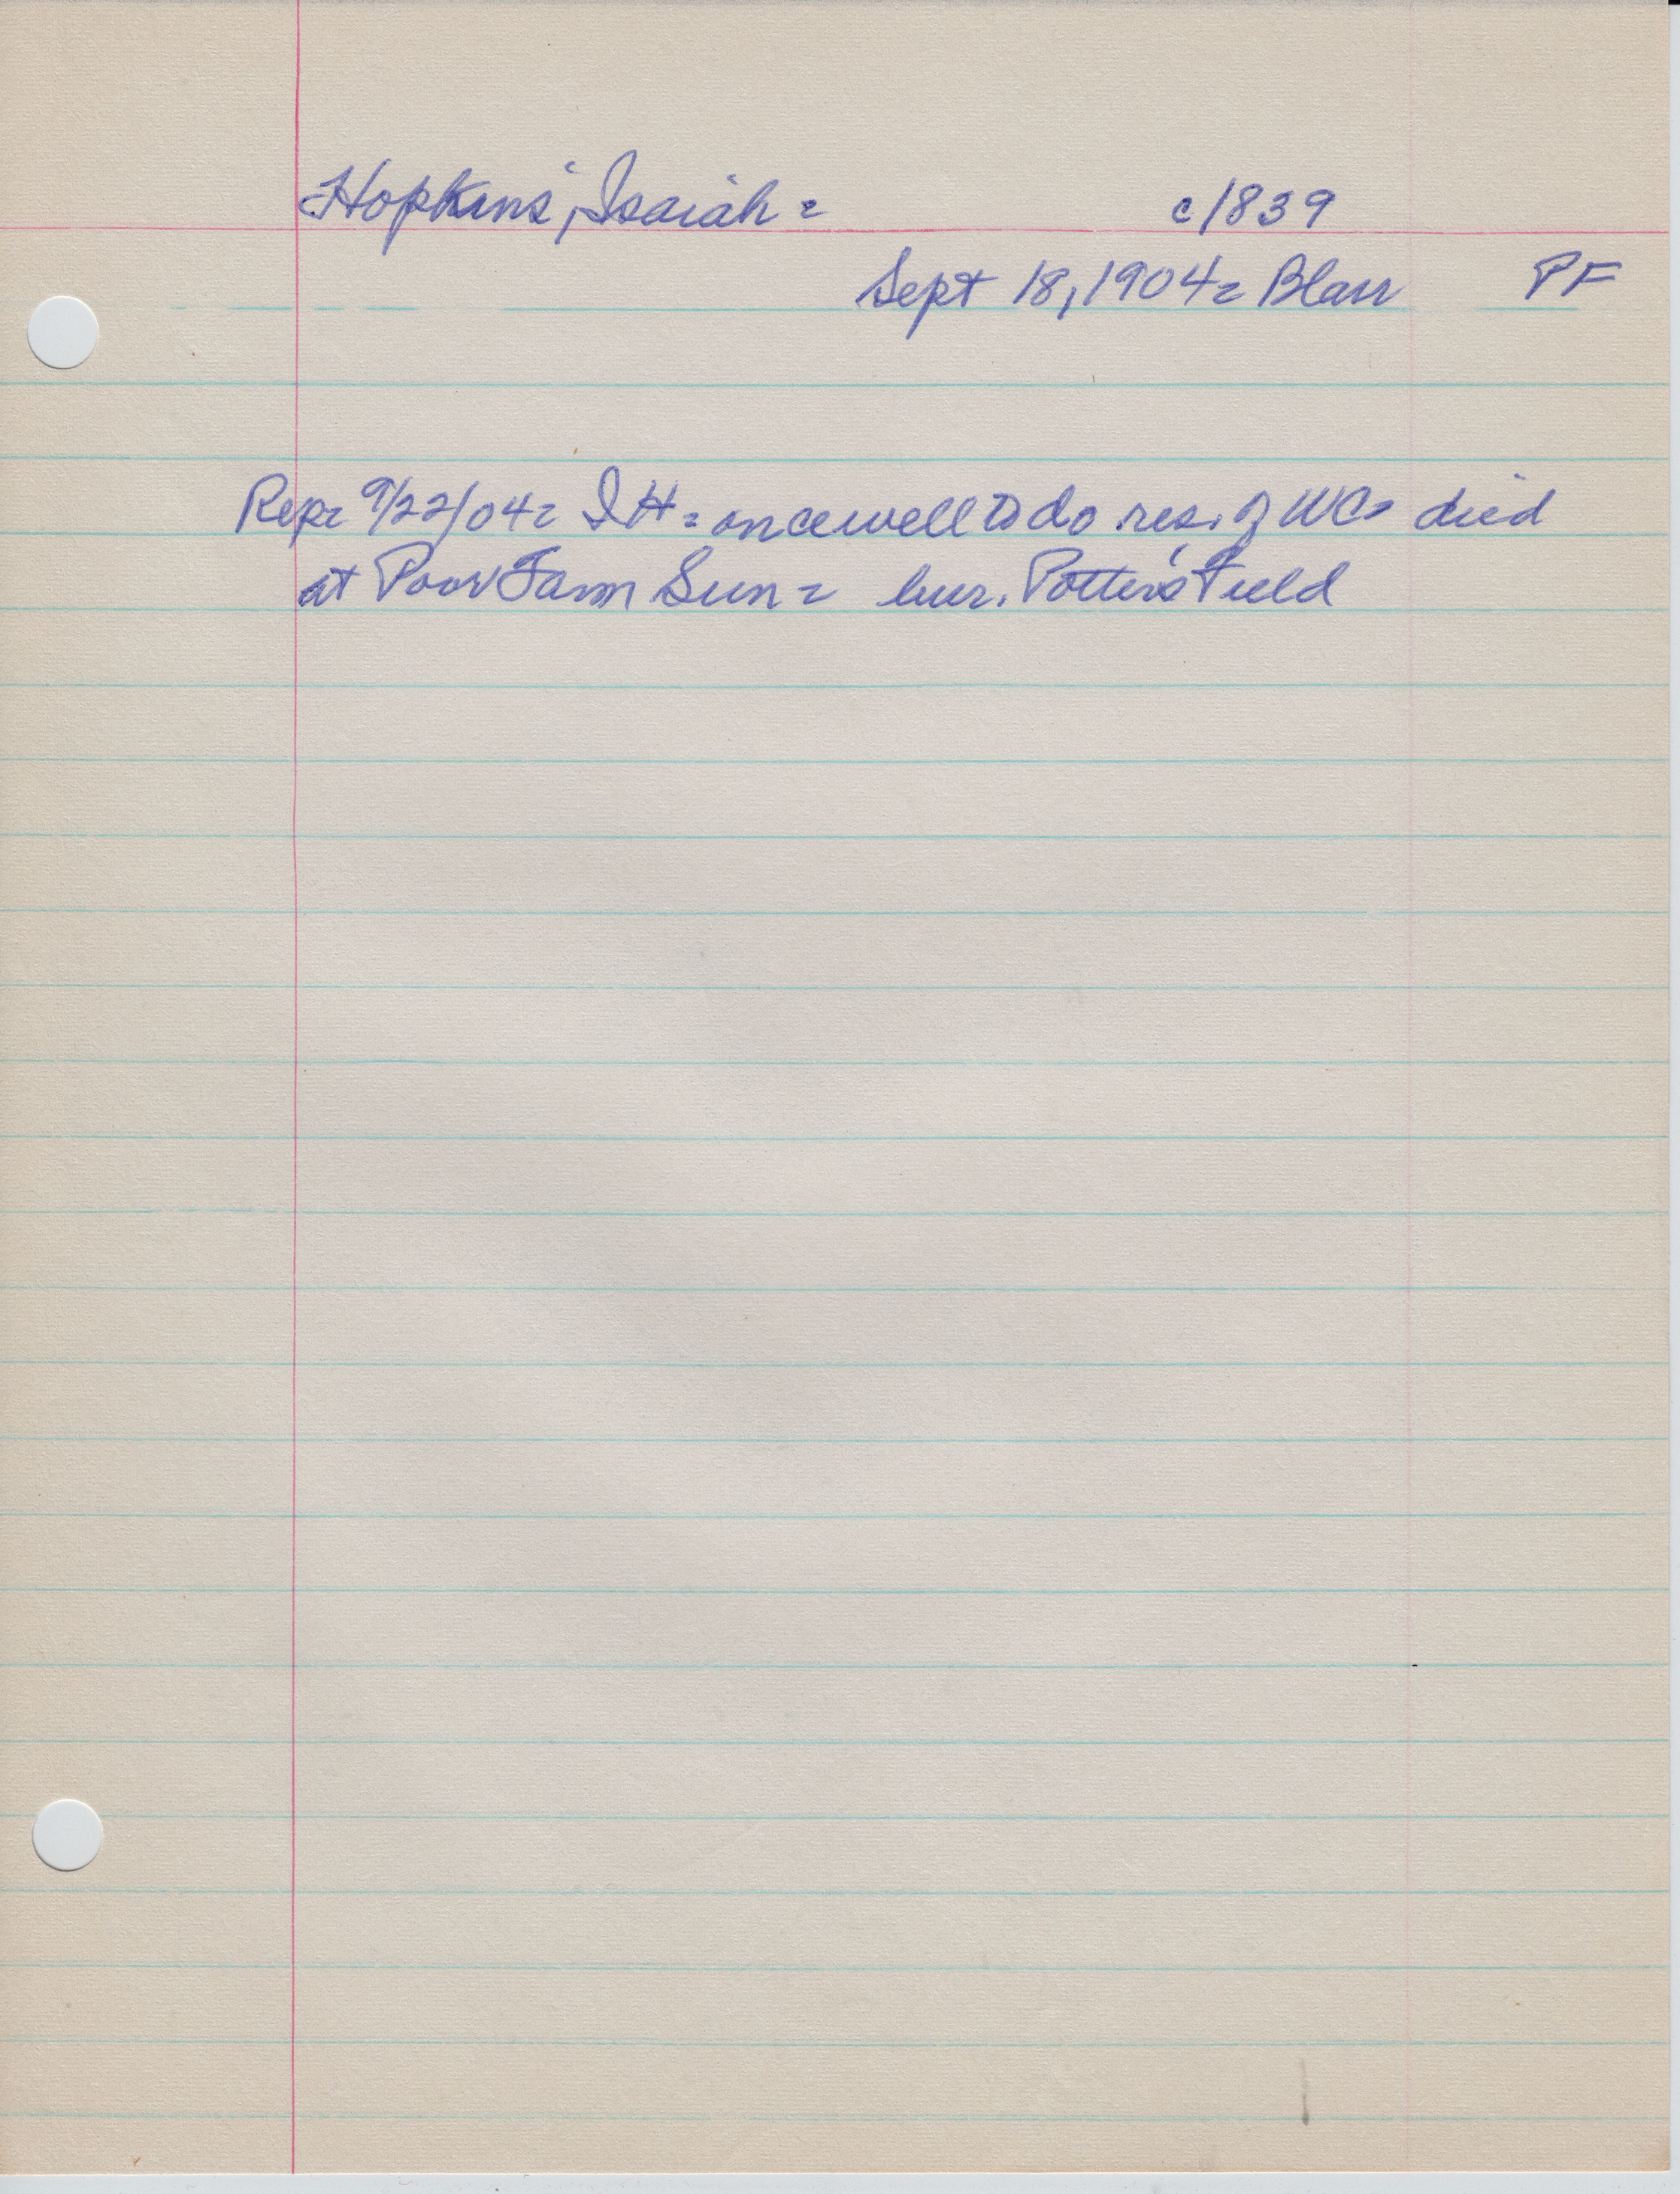 Hopkins, Isaiah = c/1839
Sept 18, 1904 = Blair PF
Rep = 9/22/04 = I H = once well to do res. of WC = died
at Poor Farm Sun = bur. Potter's Field